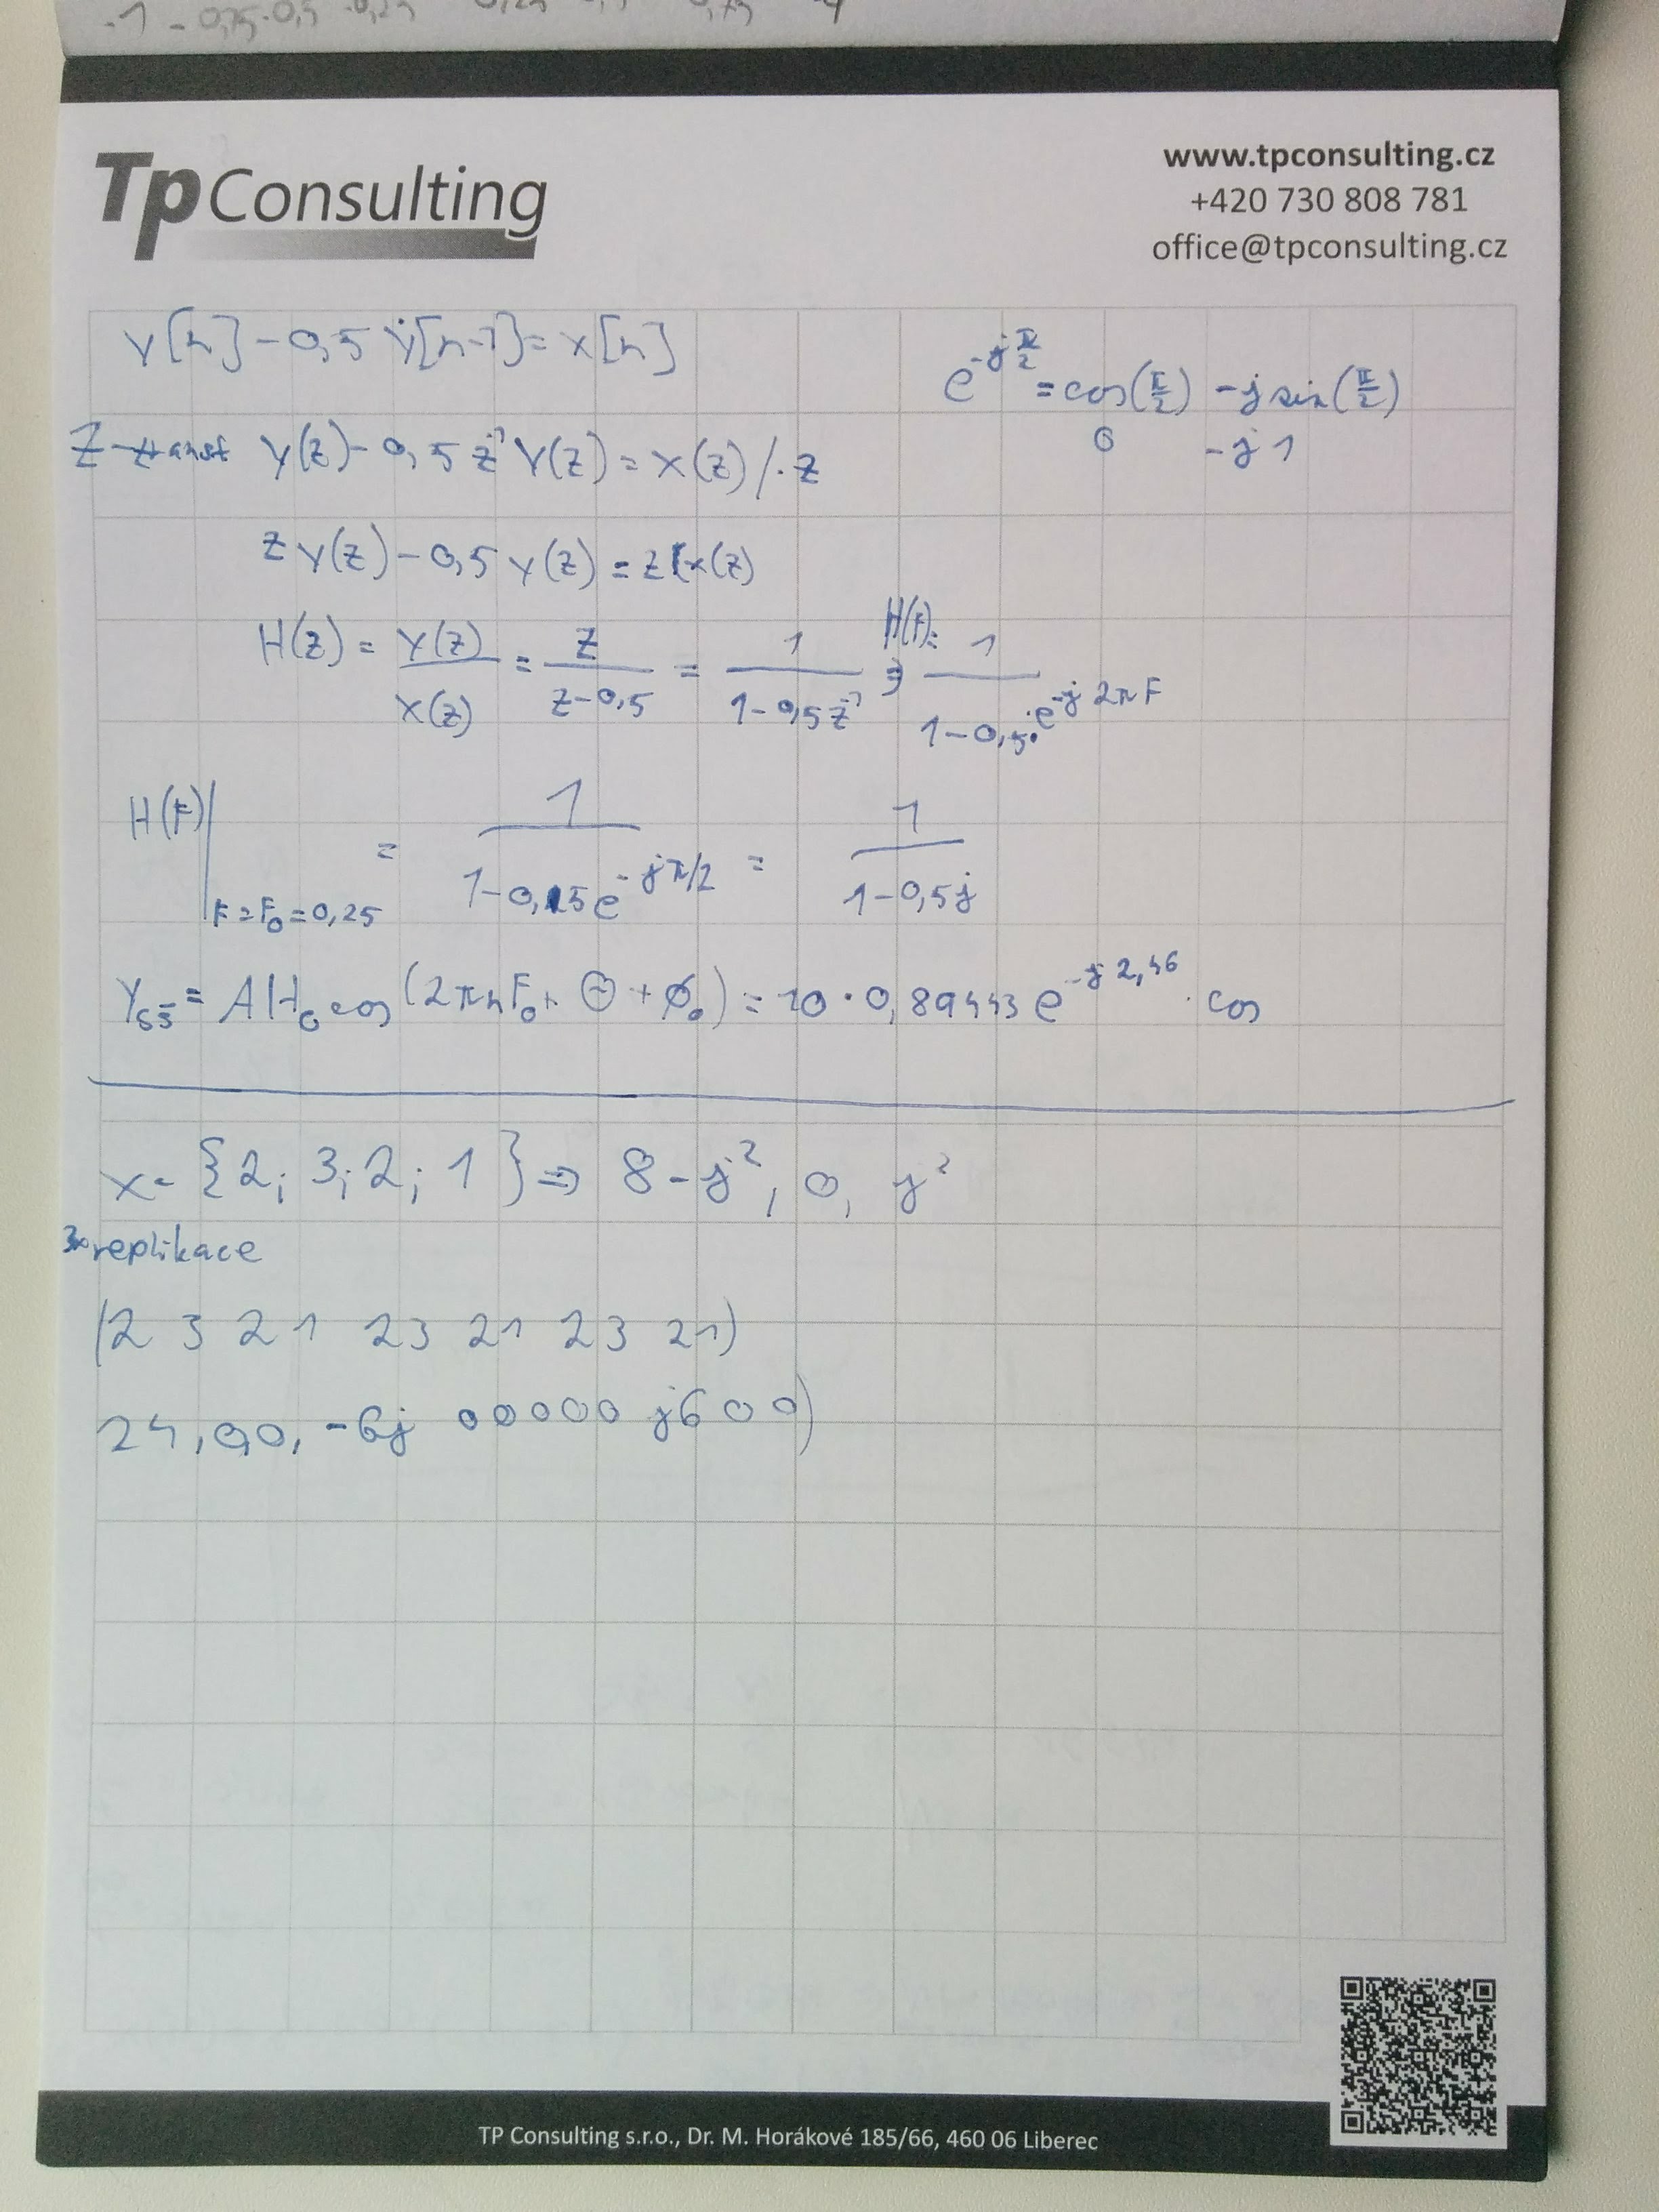 Tp Consulting
www.tpconsulting.cz
+420 730 808 781
office@tpconsulting.cz
y[n] - 0,5 y[n-1] = x[n]
e^{-j π/2} = cos(π/2) - j sin(π/2)
0 -j 1
Z-transf Y(z) - 0,5 z^{-1} Y(z) = X(z) / · z
z Y(z) - 0,5 Y(z) = z X(z)
H(z) = Y(z)/X(z) = z/(z-0,5) = 1/(1-0,5z^{-1}) ⇒ H(F) = 1/(1-0,5·e^{-j2πF})
H(F)|F=F0=0,25 = 1/(1-0,5e^{-jπ/2}) = 1/(1-0,5j)
Yss = A|H0 cos(2πnF0 + Θ + φ0) = 10 · 0,89443 e^{-j 2,46} · cos
x = {2; 3; 2; 1} ⇒ 8 - j2, 0, j2
3x replikace
(2 3 2 1 2 3 2 1 2 3 2 1)
24, 0,0, -6j 0 0 0 0 0 j6 0 0)
TP Consulting s.r.o., Dr. M. Horákové 185/66, 460 06 Liberec